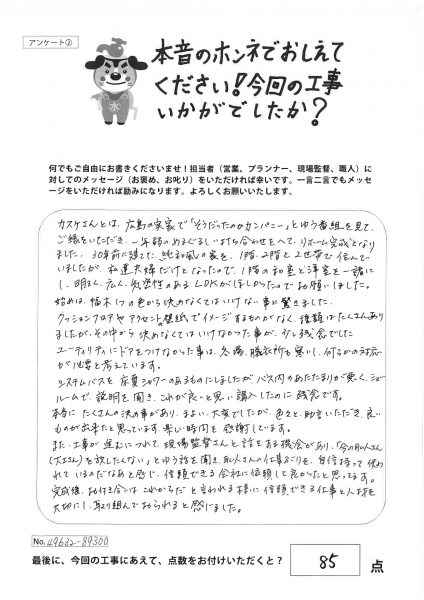 アンケート③
本音のホンネでおしえて
ください!今回の工事
いかがでしたか?
水
何でもご自由にお書きくださいませ!担当者(営業、プランナー、現場監督、職人)に
対してのメッセージ(お褒め、お叱り)をいただければ幸いです。一言二言でもメッセ
ージをいただければ励みになります。よろしくお願いいたします。
カスケさんとは、広島の実家で「そうだったのかカンパニー」とゆう番組を見て、
ご縁をいただき、一年弱のめぐるしい打ち合わせをへて、リホーム完成となり
ました。30年前に建てた、純和風の家を、1階、2階と2世帯で住んで
いましたが、私達夫婦だけとなったので、1階の和室と洋室を一諸に
し、明るく、広く、気密性のあるLDKがほしかったのでお願いしました。
始めは、柚木1つの色から決めなくてはいけない事に驚きました。
クッションフロアやアクセントの壁紙でイメージするものがなく、種類はたくさんあり
ましたが、その中から決めなくてはいけなかった事が、少し残念でした
ユーティリティにドアをつけなかった事は、冬場、脱衣所も寒いし、何らかの対応
が必要と考えています。
システムバスを床夏シャワーのあるものにしましたが、バス内のあたたまりが悪く、ショー
ルームで、説明を聞き、これが良いと思い購入したのに残念です。
本当にたくさんの決め事があり、まよい、大変でしたが、色々と助言いただき、良い
ものが出来たと思っています。楽しい時間を感謝しています。
また、工事が進むにつれて、現場監督さんと話をする機会があり、「今の職人さん
(大工さん)を放したくない」とゆう話を聞き、職人さんの仕事ぶりを、自信持って使われ
ているのだなあと感じ、信頼できる会社に依頼して良かったと思ってます。
完成後、お付き合いはこれからだと言われる様に信頼できる仕事と人材を
大切にし、取り組んでおられると感じました。
No. 49632-89300
最後に、今回の工事にあえて、点数をお付けいただくと? 85 点